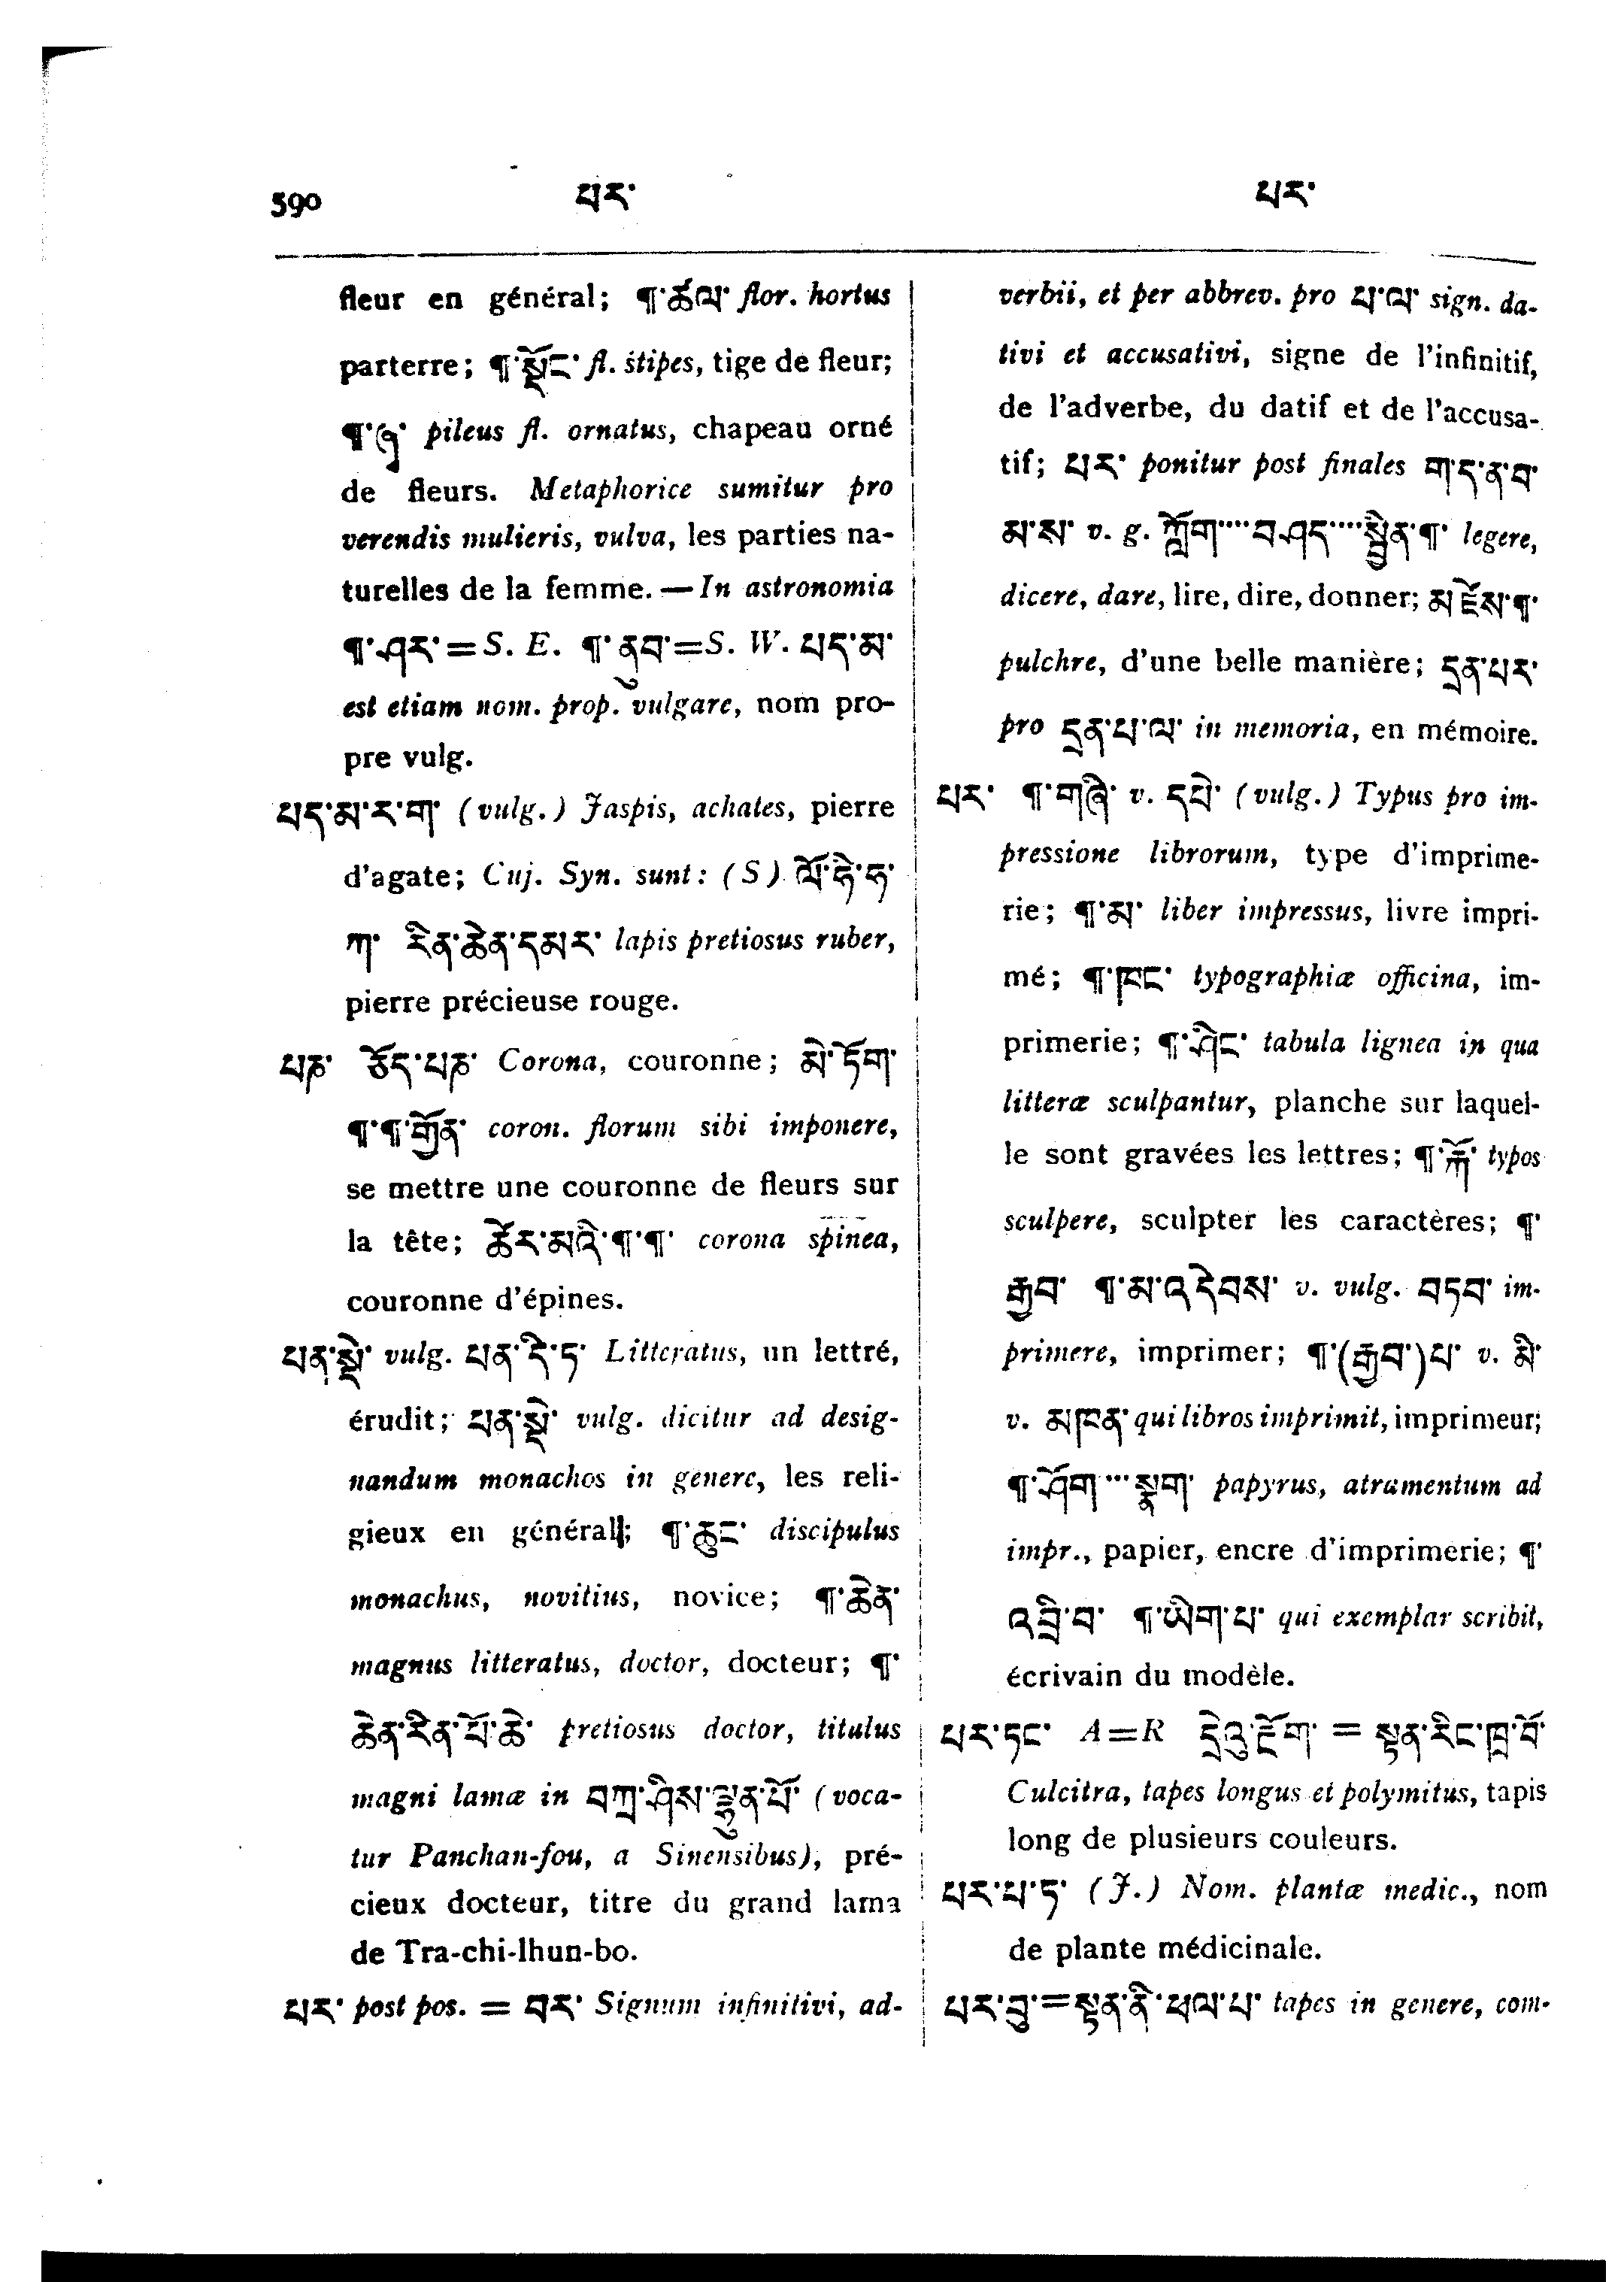 590 པར་ པར་
fleur en général; ¶་ཚལ་ flor. hortus
parterre; ¶་སྡོང་ fl. stipes, tige de fleur;
¶་ཞྭ་ pileus fl. ornatus, chapeau orné
de fleurs. Metaphorice sumitur pro
verendis mulieris, vulva, les parties na-
turelles de la femme. — In astronomia
¶་ཤར་ = S. E. ¶་ནུབ་ = S. W. པད་མ་
est etiam nom. prop. vulgare, nom pro-
pre vulg.
པད་མ་ར་ག་ (vulg.) Jaspis, achates, pierre
d'agate; Cuj. Syn. sunt: (S) ལོ་ཧི་ཏ་
ཀ་ རིན་ཆེན་དམར་ lapis pretiosus ruber,
pierre précieuse rouge.
པཎ་ ཅོད་པཎ་ Corona, couronne; མེ་ཏོག་
¶་¶་གྱོན་ coron. florum sibi imponere,
se mettre une couronne de fleurs sur
la tête; ཚེར་མའི་¶་¶་ corona spinea,
couronne d'épines.
པན་སྡེ་ vulg. པན་དི་ཏ་ Litteratus, un lettré,
érudit; པན་སྡེ་ vulg. dicitur ad desig-
nandum monachos in genere, les reli-
gieux en général; ¶་ཆུང་ discipulus
monachus, novitius, novice; ¶་ཆེན་
magnus litteratus, doctor, docteur; ¶་
ཆེན་རིན་པོ་ཆེ་ pretiosus doctor, titulus
magni lamæ in བཀྲ་ཤིས་ལྷུན་པོ་ (voca-
tur Panchan-fou, a Sinensibus), pré-
cieux docteur, titre du grand lama
de Tra-chi-lhun-bo.
པར་ post pos. = བར་ Signum infinitivi, ad-
verbii, et per abbrev. pro པ་ལ་ sign. da-
tivi et accusativi, signe de l'infinitif,
de l'adverbe, du datif et de l'accusa-
tif; པར་ ponitur post finales ག་ད་ན་བ་
མ་ས་ v. g. ཀློག་····བཤད་····སྦྱིན་¶་ legere,
dicere, dare, lire, dire, donner; མཛེས་¶་
pulchre, d'une belle manière; དྲན་པར་
pro དྲན་པ་ལ་ in memoria, en mémoire.
པར་ ¶་གཞི་ v. དཔེ་ (vulg.) Typus pro im-
pressione librorum, type d'imprime-
rie; ¶་མ་ liber impressus, livre impri-
mé; ¶་ཁང་ typographiæ officina, im-
primerie; ¶་ཤིང་ tabula lignea in qua
litteræ sculpantur, planche sur laquel-
le sont gravées les lettres; ¶་རྐོ་ typos
sculpere, sculpter les caractères; ¶་
རྒྱབ་ ¶་མ་འདེབས་ v. vulg. བཏབ་ im-
primere, imprimer; ¶་(རྒྱབ་)པ་ v. མི་
v. མཁན་ qui libros imprimit, imprimeur;
¶་ཤོག་···སྣག་ papyrus, atramentum ad
impr., papier, encre d'imprimerie; ¶་
འབྲི་བ་ ¶་ཡིག་པ་ qui exemplar scribit,
écrivain du modèle.
པར་ཏང་ A=R དྲེའུ་ཛོག་ = སྟན་རིང་ཁྲ་བོ་
Culcitra, tapes longus et polymitus, tapis
long de plusieurs couleurs.
པར་པ་ཏ་ (J.) Nom. plantæ medic., nom
de plante médicinale.
པར་བུ་=སྟན་ནི་ཕལ་པ་ tapes in genere, com-